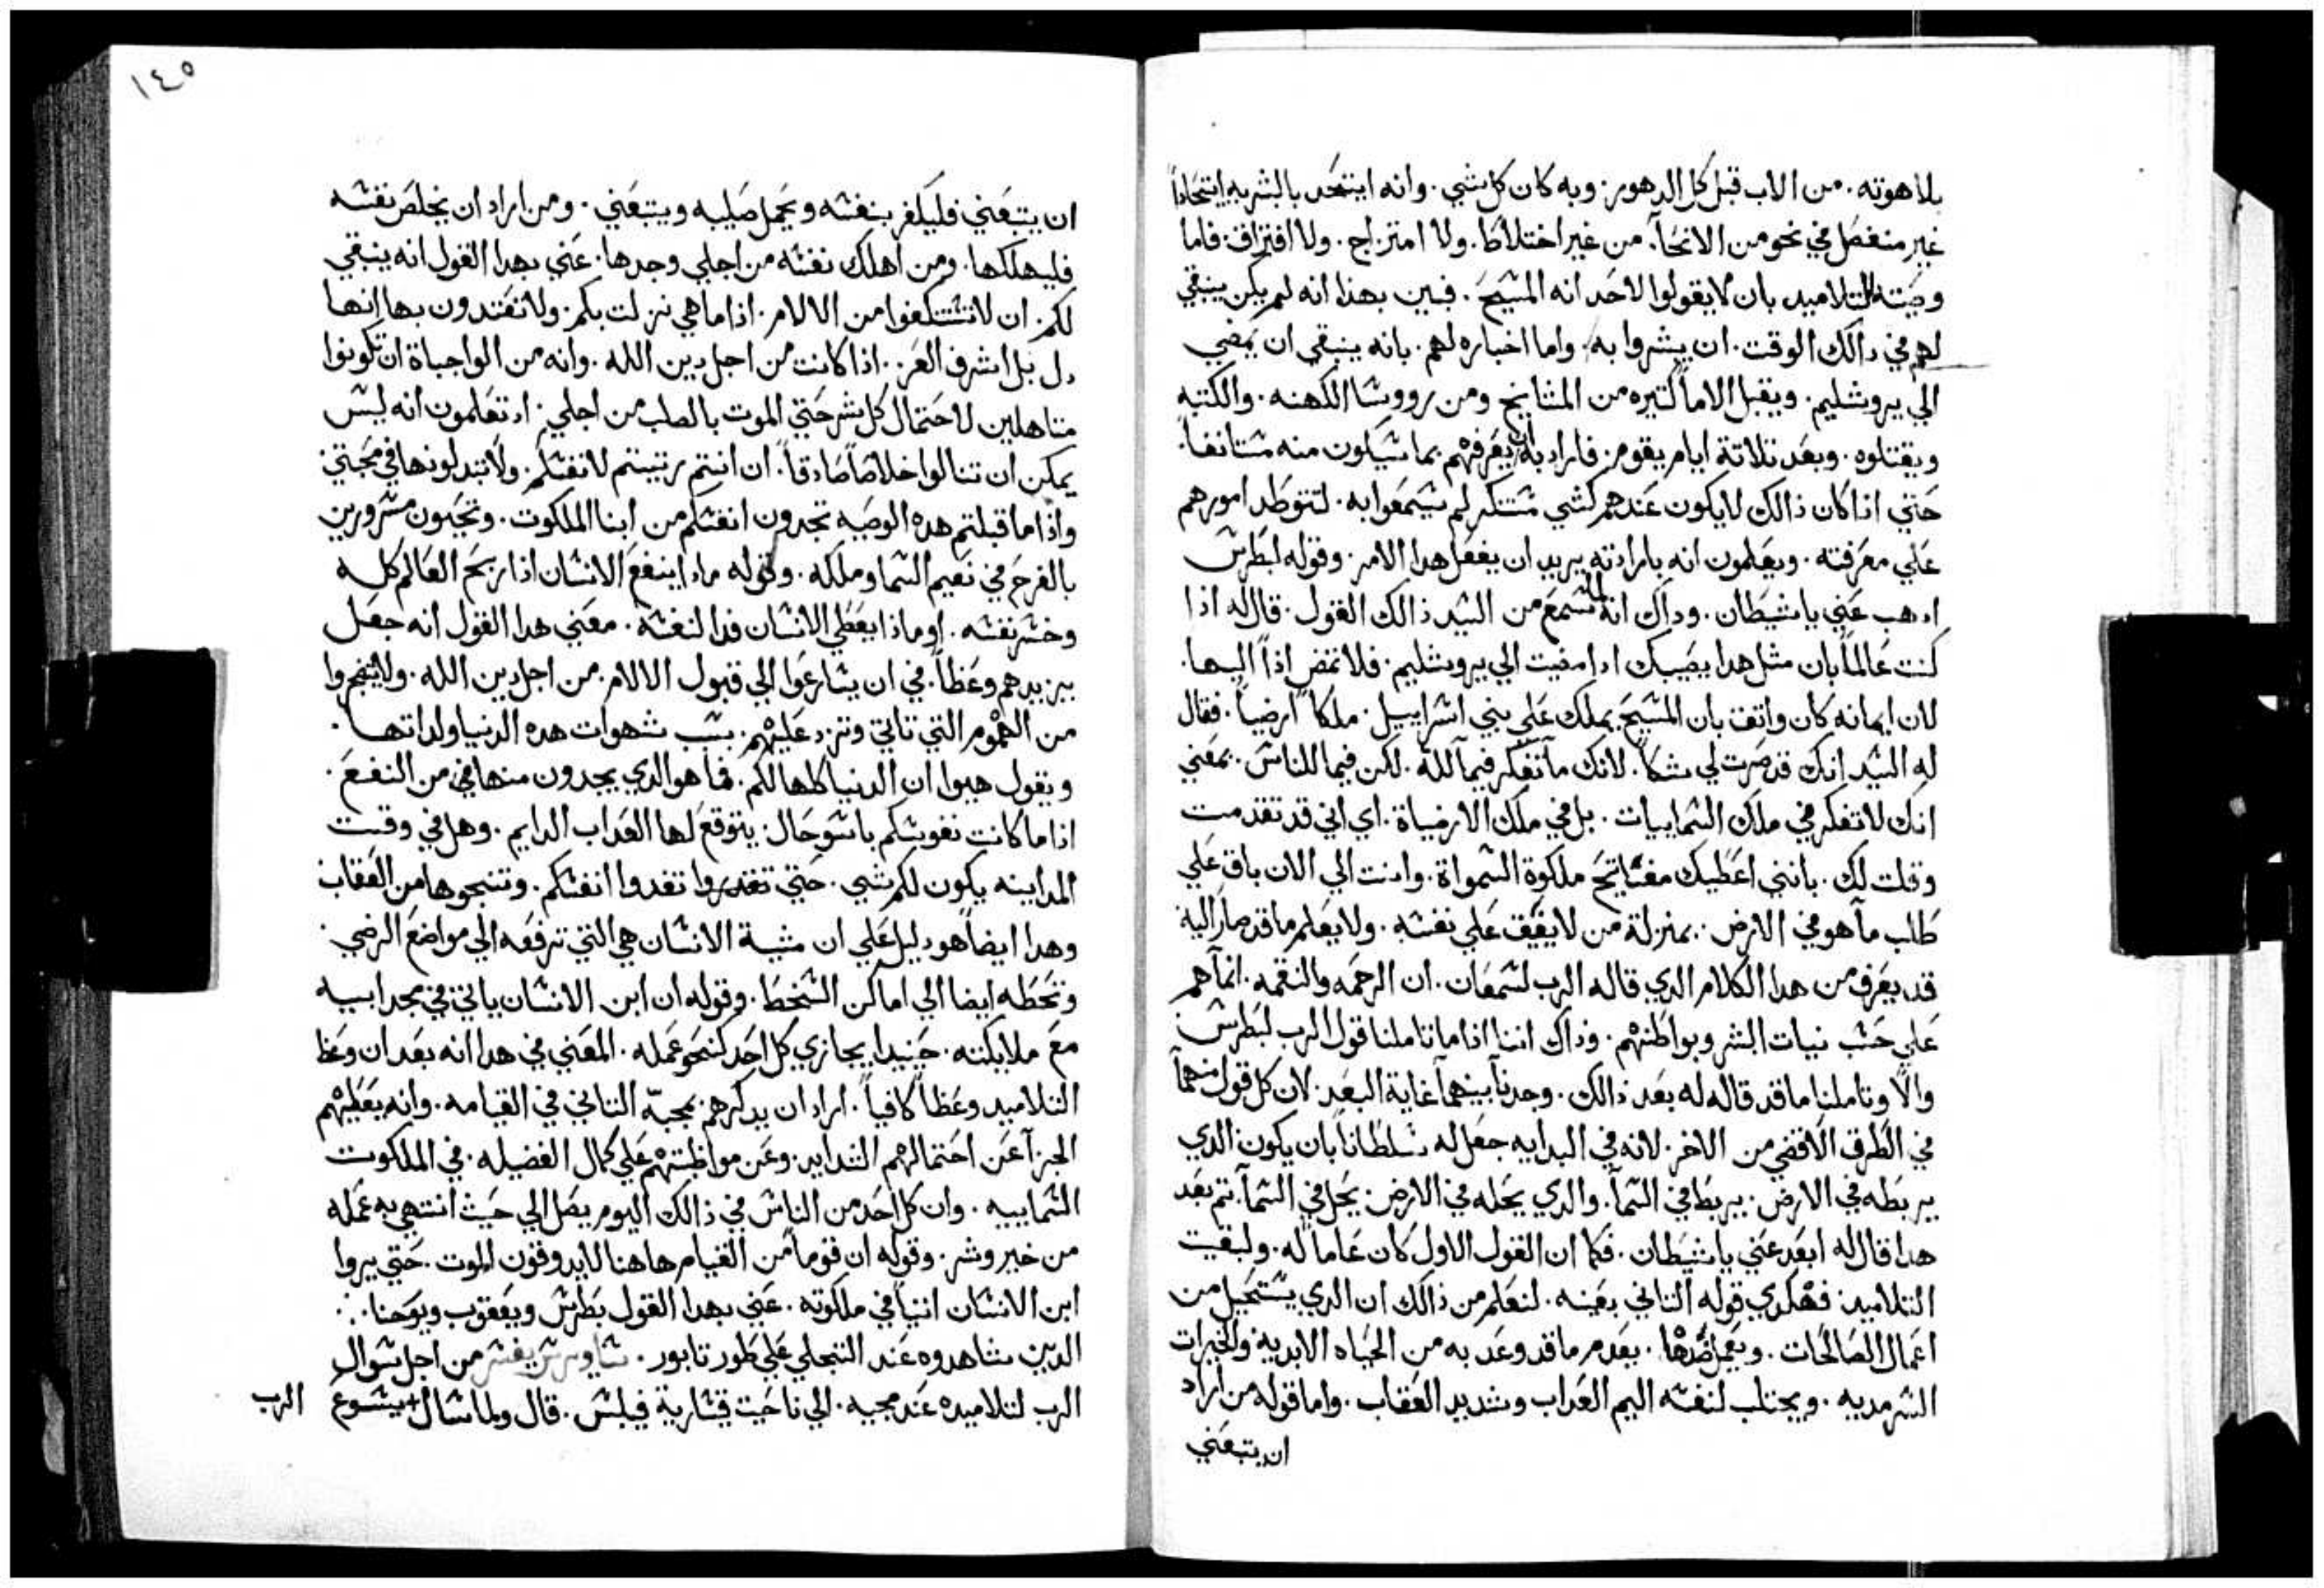 بلاهوته. من الاب قبل كل الدهور. وبه كان كل شي. وانه ايتحد بالبشريه ايتحاداً
غير منفصل في نحو من الانحآ. من غير اختلاط. ولا امتزاج. ولا افتراق. فاما
وصيته للتلاميد بان لا يقولوا لاحد انه المسيح. فبين بهذا انه لم يكن ينبغي
لهم في دالك الوقت. ان يبشروا به. واما اخباره لهم. بانه ينبغي ان يمضي
الي يروشليم. ويقبل الاماً كتيره من المشايخ ومن رووسا الكهنه. والكتبه
ويقتلوه. وبعد تلاتة ايام يقوم. فاراد بان يعرفهم بما سيكون منه مستانفاً.
حتي اذا كان ذالك لا يكون عندهم كشي مستنكر لم يسمعوا به. لتتوطد امورهم
علي معرفته. ويعلمون انه بارادته يريد ان يفعل هدا الامر. وقوله لبطرس
ادهب عني يا شيطان. وداك انه لما سمع من السيد ذالك القول. قال له اذا
كنت عالماً بان مثل هدا يصيبك ادا مضيت الي يروشليم. فلا تمض اذاً اليها.
لان ايمانه كان واتق بان المسيح يملك علي بني اسراييل. ملكاً ارضياً. فقال
له السيد انك قد صرت لي شكاً. لانك ما تفكر فيما لله. لكن فيما للناس. بمعني
انك لا تفكر في ملك السماييات. بل في ملك الارضياة. اي اني قد تقدمت
وقلت لك. بانني اعطيك مفاتيح ملكوة السمواة. وانت الي الان باق علي
طلب ما هو في الارض. بمنزلة من لا يقف علي نفسه. ولا يعلم ما قد صار اليه
قد يعرف من هدا الكلام الدي قاله الرب لسمعان. ان الرحمه والنقمه. انما هم
علي حسب نيات البشر وبواطنهم. وذاك اننا اذا ما تاملنا قول الرب لبطرس
والا وتاملنا ما قد قاله له بعد ذالك. وجدنا بينهما غاية البعد. لان كل قول منهما
في الطرف الاقصي من الاخر. لانه في البدايه جعل له سلطاناً بان يكون الدي
يربطه في الارض. يربط في السمآ. والدي يحله في الارض. يحل في السمآ. تم بعد
هدا قال له ابعد عني يا شيطان. فكما ان القول الاول كان عاما له. ولبقيت
التلاميد. فهكدي قوله التاني بعينه. لنعلم من ذالك ان الدي يستحيل من
اعمال الصالحات. ويعمل ضدها. يعدم ما قد وعد به من الحياه الابديه والخيرات
السرمديه. ويجتلب لنفسه اليم العداب وشديد العقاب. واما قوله من اراد
ان يتبعني
١٤٥
ان يتبعني فليكفر بنفسه ويحمل صليبه ويتبعني. ومن اراد ان يخلص نفسه
فليهلكها. ومن اهلك نفسه من اجلي وجدها. عني بهدا القول انه ينبغي
لكم. ان لا تستنكفوا من الالام. اذا ما هي نزلت بكم. ولا تعتدون بها انها
دل بل اشرف العز. اذا كانت من اجل دين الله. وانه من الواجباة ان تكونوا
متاهلين لاحتمال كل شر حتي الموت بالصلب من اجلي. اد تعلمون انه ليس
يمكن ان تنالوا خلاصاً صادقاً. ان انتم رتيتم لانفسكم. ولا تبدلونها في محبتي
واذا ما قبلتم هده الوصيه تجدون انفسكم من ابنا الملكوت. وتحيون مسرورين
بالفرح في نعيم السما وملكه. وقوله مادا ينفع الانسان اذا ربح العالم كله
وخسر نفسه. او ماذا يعطي الانسان فدا لنفسه. معني هدا القول انه جعل
يزيدهم وعظاً. في ان يسارعوا الي قبول الالام. من اجل دين الله. ولا يضجروا
من الهموم التي تاتي وترد عليهم. بسبب شهوات هده الدنيا ولداتها.
ويقول هبوا ان الدنيا كلها لكم. فما هو الدي يجدون منها في من النفع.
اذا ما كانت نفوسكم باسو حال. يتوقع لها العداب الدايم. وهل في وقت
المداينه يكون لكم شي. حتي تقدروا تفدوا انفسكم. وتنجوها من العقاب
وهدا ايضاً هو دليل علي ان مشية الانسان هي التي ترفعه الي مواضع الرضي.
وتحطه ايضا الي اماكن السخط. وقوله ان ابن الانسان ياتي في مجد ابيه
مع ملايكته. حينيدا يجازي كل احد كنحو عمله. المعني في هدا انه بعد ان وعظ
التلاميد وعظاً كافياً. اراد ان يدكرهم بمجيه التاني في القيامه. وانه يعطيهم
الجزآ عن احتمالهم الشدايد. وعن مواظبتهم علي كمال الفضيله. في الملكوت
السماييه. وان كل احد من الناس في ذالك اليوم يصل الي حيث انتهي به عمله
من خير وشر. وقوله ان قوماً من القيام هاهنا لا يدوقون الموت. حتي يروا
ابن الانسان اتياً في ملكوته. عني بهدا القول بطرس ويعقوب ويوحنا.
الدين شاهدوه عند التجلي علي طور تابور. ساويرس يفسر من اجل سوال
الرب لتلاميده عند مجيه. الي ناحيت قيسارية فيلبس. قال ولما سال يسوع
الرب